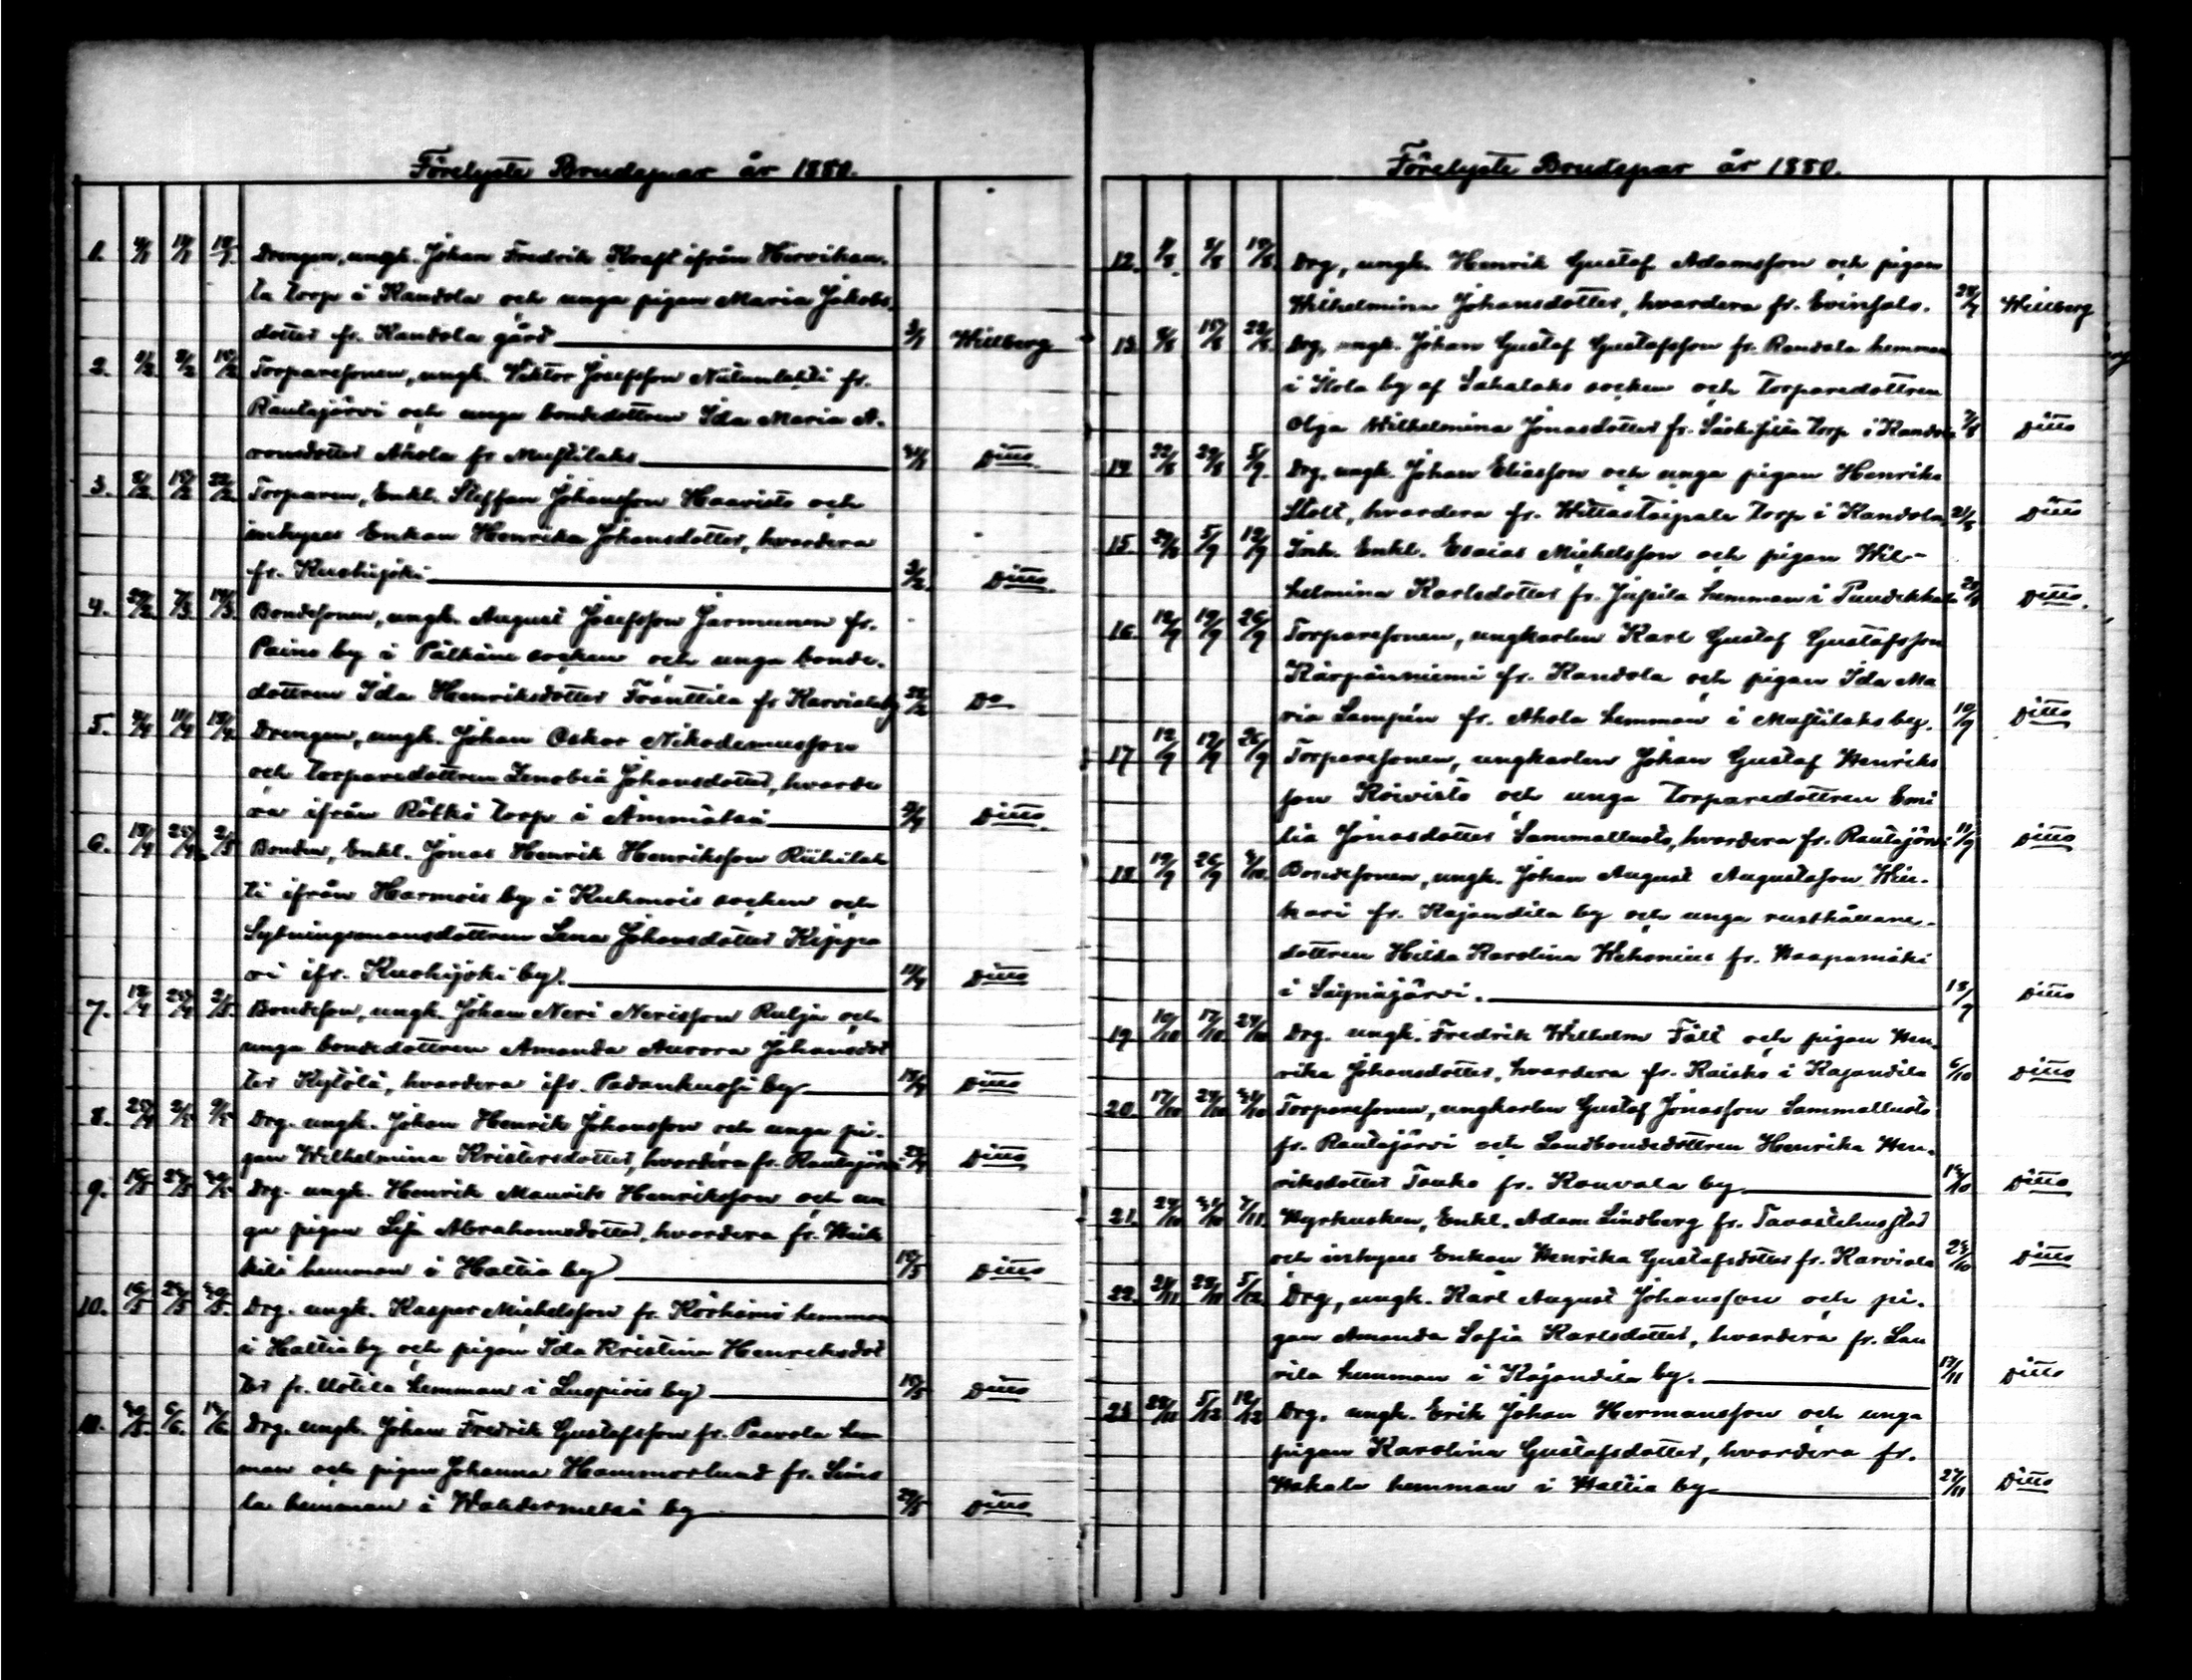 Förelyste Brudepar år 1880.
1. 4/1 11/1 18/1 Drengen, ungk. Johan Fredrik Kraft ifrån Hirvihau-
ta torp i Kandola och unga pigan Maria Jakobs-
dotter fr. Kandola gård 3/1 Willberg
2. 1/2 8/2 15/2 Torparesonen, ungk. Viktor Josefsson Niiunlahti fr.
Rautajärvi och unga bondedottren Ida Maria A-
ronsdotter Ahola fr Mustilaks 31/1 Ditto
3. 8/2 15/2 22/2 Torparen, Enkl. Steffan Johansson Haavisto och
inhyses Enkan Henrika Johansdotter, hvardera
fr. Kuohijoki 3/2 Ditto
4. 29/2 7/3 14/3 Bondesonen, ungk. August Josefsson Jarmunen fr.
Paino by i Pälkäne socken och unga bonde-
dottren Ida Henriksdotter Fränttilä fr Karviala by 22/2 Do
5. 4/4 11/4 18/4 Drengen, ungk. Johan Oskar Nikodemusson
och torparedottren Zenobia Johansdotter, hvarde
ra ifrån Rötkö torp i Ämmätsä 3/4 Ditto
6. 18/4 25/4 2/5 Bonden, Enkl. Jonas Henrik Henriksson Riihilah
ti ifrån Harmois by i Kuhmois socken och
Sytningsmansdottren Lena Johansdotter Keppo
vi ifr. Kuohijoki by. 15/4 Ditto
7. 18/4 25/4 2/5 Bondeson, ungk. Johan Neri Nerisson Rulja och
unga bondedottren Amanda Aurora Johansdot
ter Kylölä, hvardera ifr. Padankoski by 15/4 Ditto
8. 25/4 2/5 9/5 Drg. ungk. Johan Henrik Johansson och unga pi-
gan Wilhelmina Kristersdotter, hvardera fr. Rautajärvi 24/4 Ditto
9. 16/5 23/5 30/5 Drg. ungk. Henrik Maurits Henriksson och un
ga pigan Lisa Abrahamsdotter, hvardera fr. Heik
kilä hemman i Haltia by 15/5 Ditto
10. 16/5 23/5 30/5 Drg. ungk. Kasper Michelsson fr. Körkömö hemman
i Haltia by och pigan Ida Kristina Henriksdot
ter fr. Uotila hemman i Luopiois by 15/5 Ditto
11. 30/5 6/6 13/6 Drg. ungk. Johan Fredrik Gustafsson fr. Paavola hem
man och pigan Johanna Hammarlund fr. Simo
la hemman i Wahdermetsä by 29/5 Ditto
Förelyste Brudepar år 1880.
12. 1/8 8/8 15/8 Drg, ungk. Henrik Gustaf Adamsson och pigan
Wilhelmina Johansdotter, hvardera fr. Evinsalo. 24/7 Willberg
13. 8/8 15/8 22/8 Drg. ungk. Johan Gustaf Gustafsson fr. Randala hemman
i Isola by af Sahalaks socken och torparedottren
Olga Wilhelmina Jonasdotter fr. torp i Kandola 7/8 Ditto
14. 22/8 29/8 5/9 Drg. ungk. Johan Eliasson och unga pigan Henrika
Stolt, hvardera fr. Wittastaipale torp i Kandola 21/8 Ditto
15. 29/8 5/9 12/9 Inh. Enkl. Esaias Michelsson och pigan Wil-
helmina Karlsdotter fr. Jussila hemman i Puutikkala 28/8 Ditto
16. 12/9 19/9 26/9 Torparesonen, ungkarlen Karl Gustaf Gustafsson
Kärpänniemi fr. Kandola och pigan Ida Ma
ria Lampén fr. Ahola hemman i Mustilaks by. 10/9 Ditto
17 12/9 19/9 26/9 Torparesonen, ungkarlen Johan Gustaf Henriks
son Koivisto och unga torparedottren Emi
lia Jonasdotter Sammallusto, hvardera fr. Rautajärvi 11/9 Ditto
18. 19/9 26/9 3/10 Bondesonen, ungk. Johan August Augustsson Hii-
kari fr. Kajandila by och unga rusthållare-
dottren Hilda Karolina Kekonius fr. Haapamäki
i Säynäjärvi. 18/9 Ditto
19 10/10 17/10 24/10 Drg. ungk. Fredrik Wilhelm Fält och pigan Hen-
rika Johansdotter, hvardera fr. Raisko i Kajandila 6/10 Ditto
20. 17/10 24/10 31/10 Torparesonen, ungkarlen Gustaf Jonasson Sammallusto
fr. Rautajärvi och Landbondedottren Henrika Hen-
riksdotter Touko fr. Kouvala by 13/10 Ditto
21. 24/10 31/10 7/11 Hyrkusken, Enkl. Adam Lindberg fr. Tavastehus stad
och inhyses Enkan Henrika Gustafsdotter fr. Karviala 23/10 Ditto
22. 21/11 28/11 5/12 Drg, ungk. Karl August Johansson och pi-
gan Amanda Sofia Karlsdotter, hvardera fr. Lau
rila hemman i Kajandila by. 17/11 Ditto
23 28/11 5/12 12/12 Drg. ungk. Erik Johan Hermansson och unga
pigan Karolina Gustafsdotter, hvardera fr.
Hakala hemman i Haltia by 27/11 Ditto